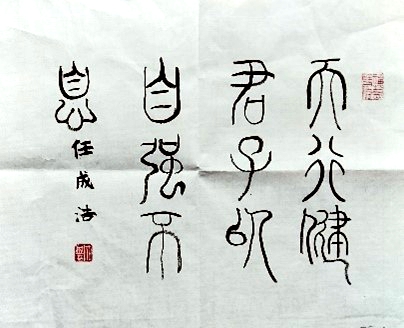 天行健
君子以
自强不
息
任成浩